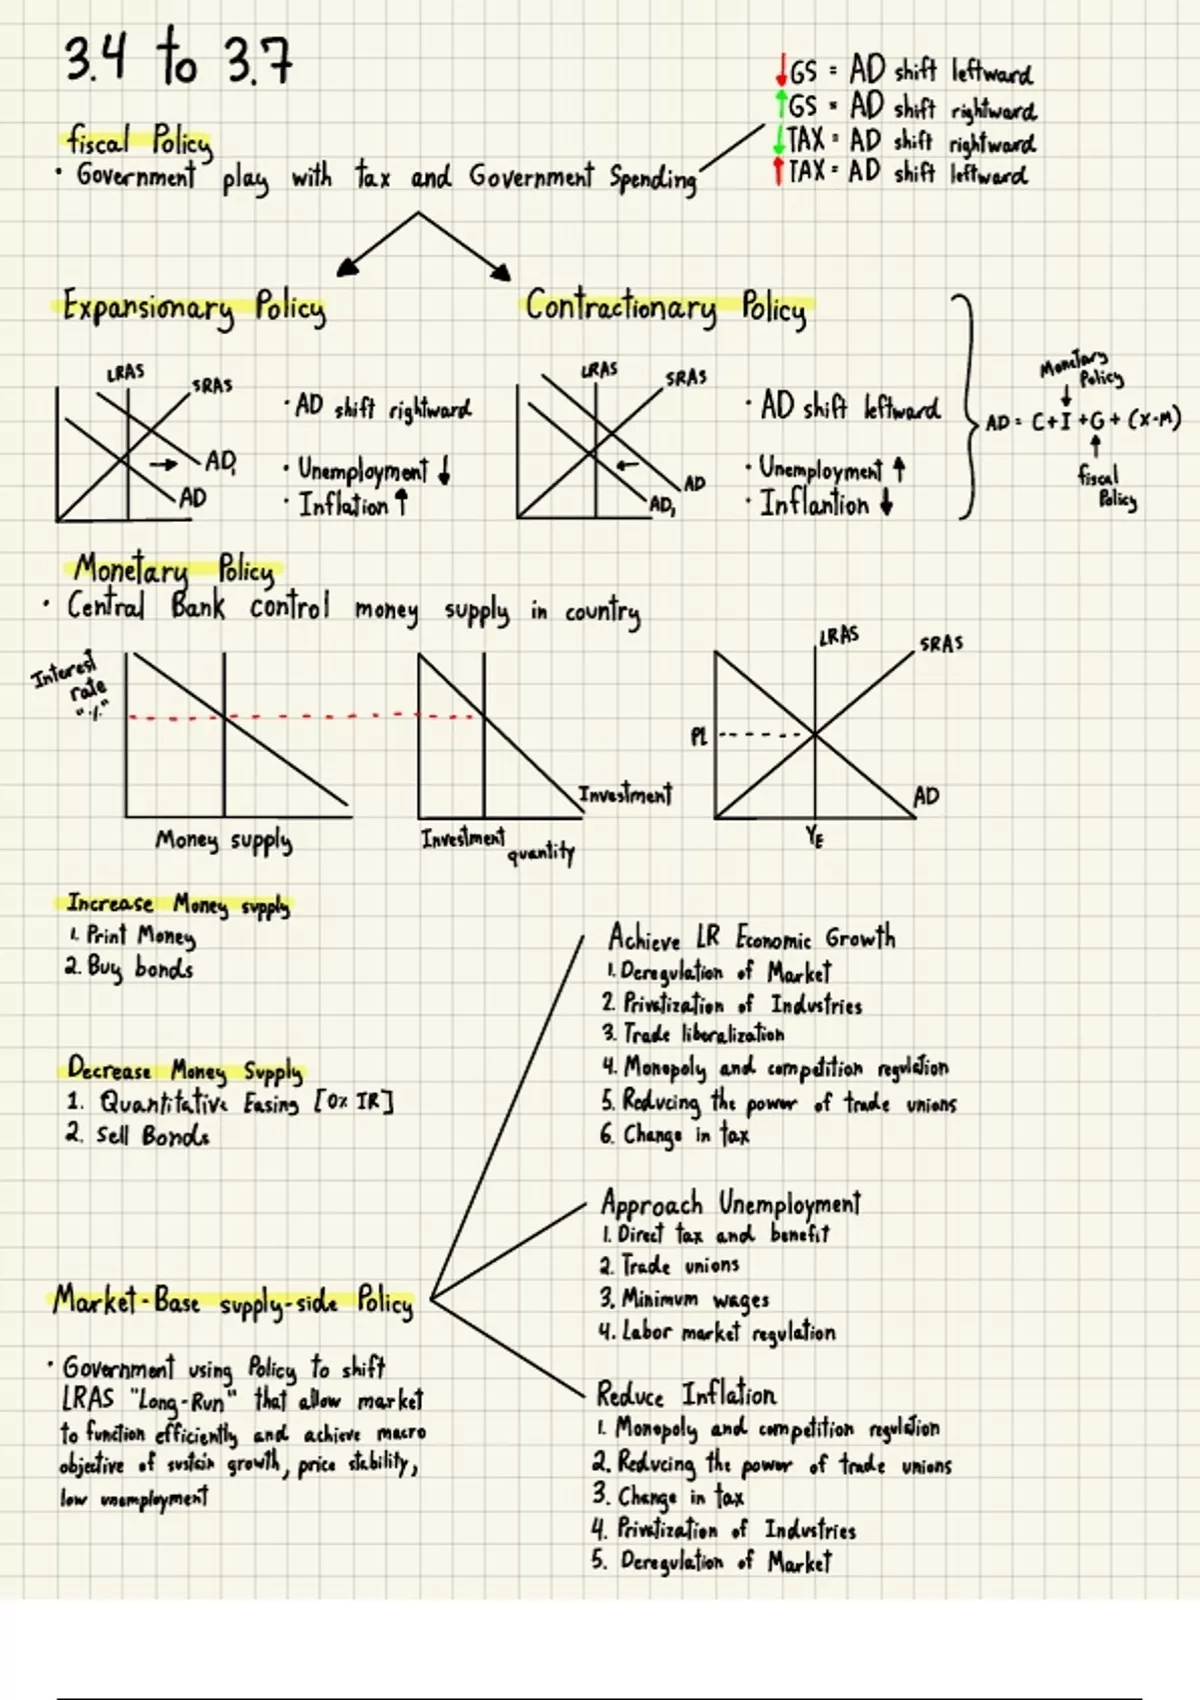 3.4 to 3.7
↓GS = AD shift leftward
↑GS = AD shift rightward
↓TAX = AD shift rightward
↑TAX = AD shift leftward
fiscal Policy
• Government play with tax and Government Spending
Expansionary Policy
LRAS
SRAS
AD₁
AD
• AD shift rightward
• Unemployment ↓
• Inflation ↑
Contractionary Policy
LRAS
SRAS
AD
AD₁
• AD shift leftward
• Unemployment ↑
• Inflantion ↓
Monetary
Policy
↓
AD = C+I+G+(X-M)
↑
fiscal
Policy
Monetary Policy
• Central Bank control money supply in country
Interest
rate
"%"
Money supply
Investment
Investment
quantity
LRAS
SRAS
PL
AD
YE
Increase Money supply
1. Print Money
2. Buy bonds
Decrease Money Supply
1. Quantitative Easing [0% IR]
2. Sell Bonds
Market-Base supply-side Policy
• Government using Policy to shift
LRAS "Long-Run" that allow market
to function efficiently and achieve macro
objective of sustain growth, price stability,
low unemployment
Achieve LR Economic Growth
1. Deregulation of Market
2. Privatization of Industries
3. Trade liberalization
4. Monopoly and competition regulation
5. Reducing the power of trade unions
6. Change in tax
Approach Unemployment
1. Direct tax and benefit
2. Trade unions
3. Minimum wages
4. Labor market regulation
Reduce Inflation
1. Monopoly and competition regulation
2. Reducing the power of trade unions
3. Change in tax
4. Privatization of Industries
5. Deregulation of Market